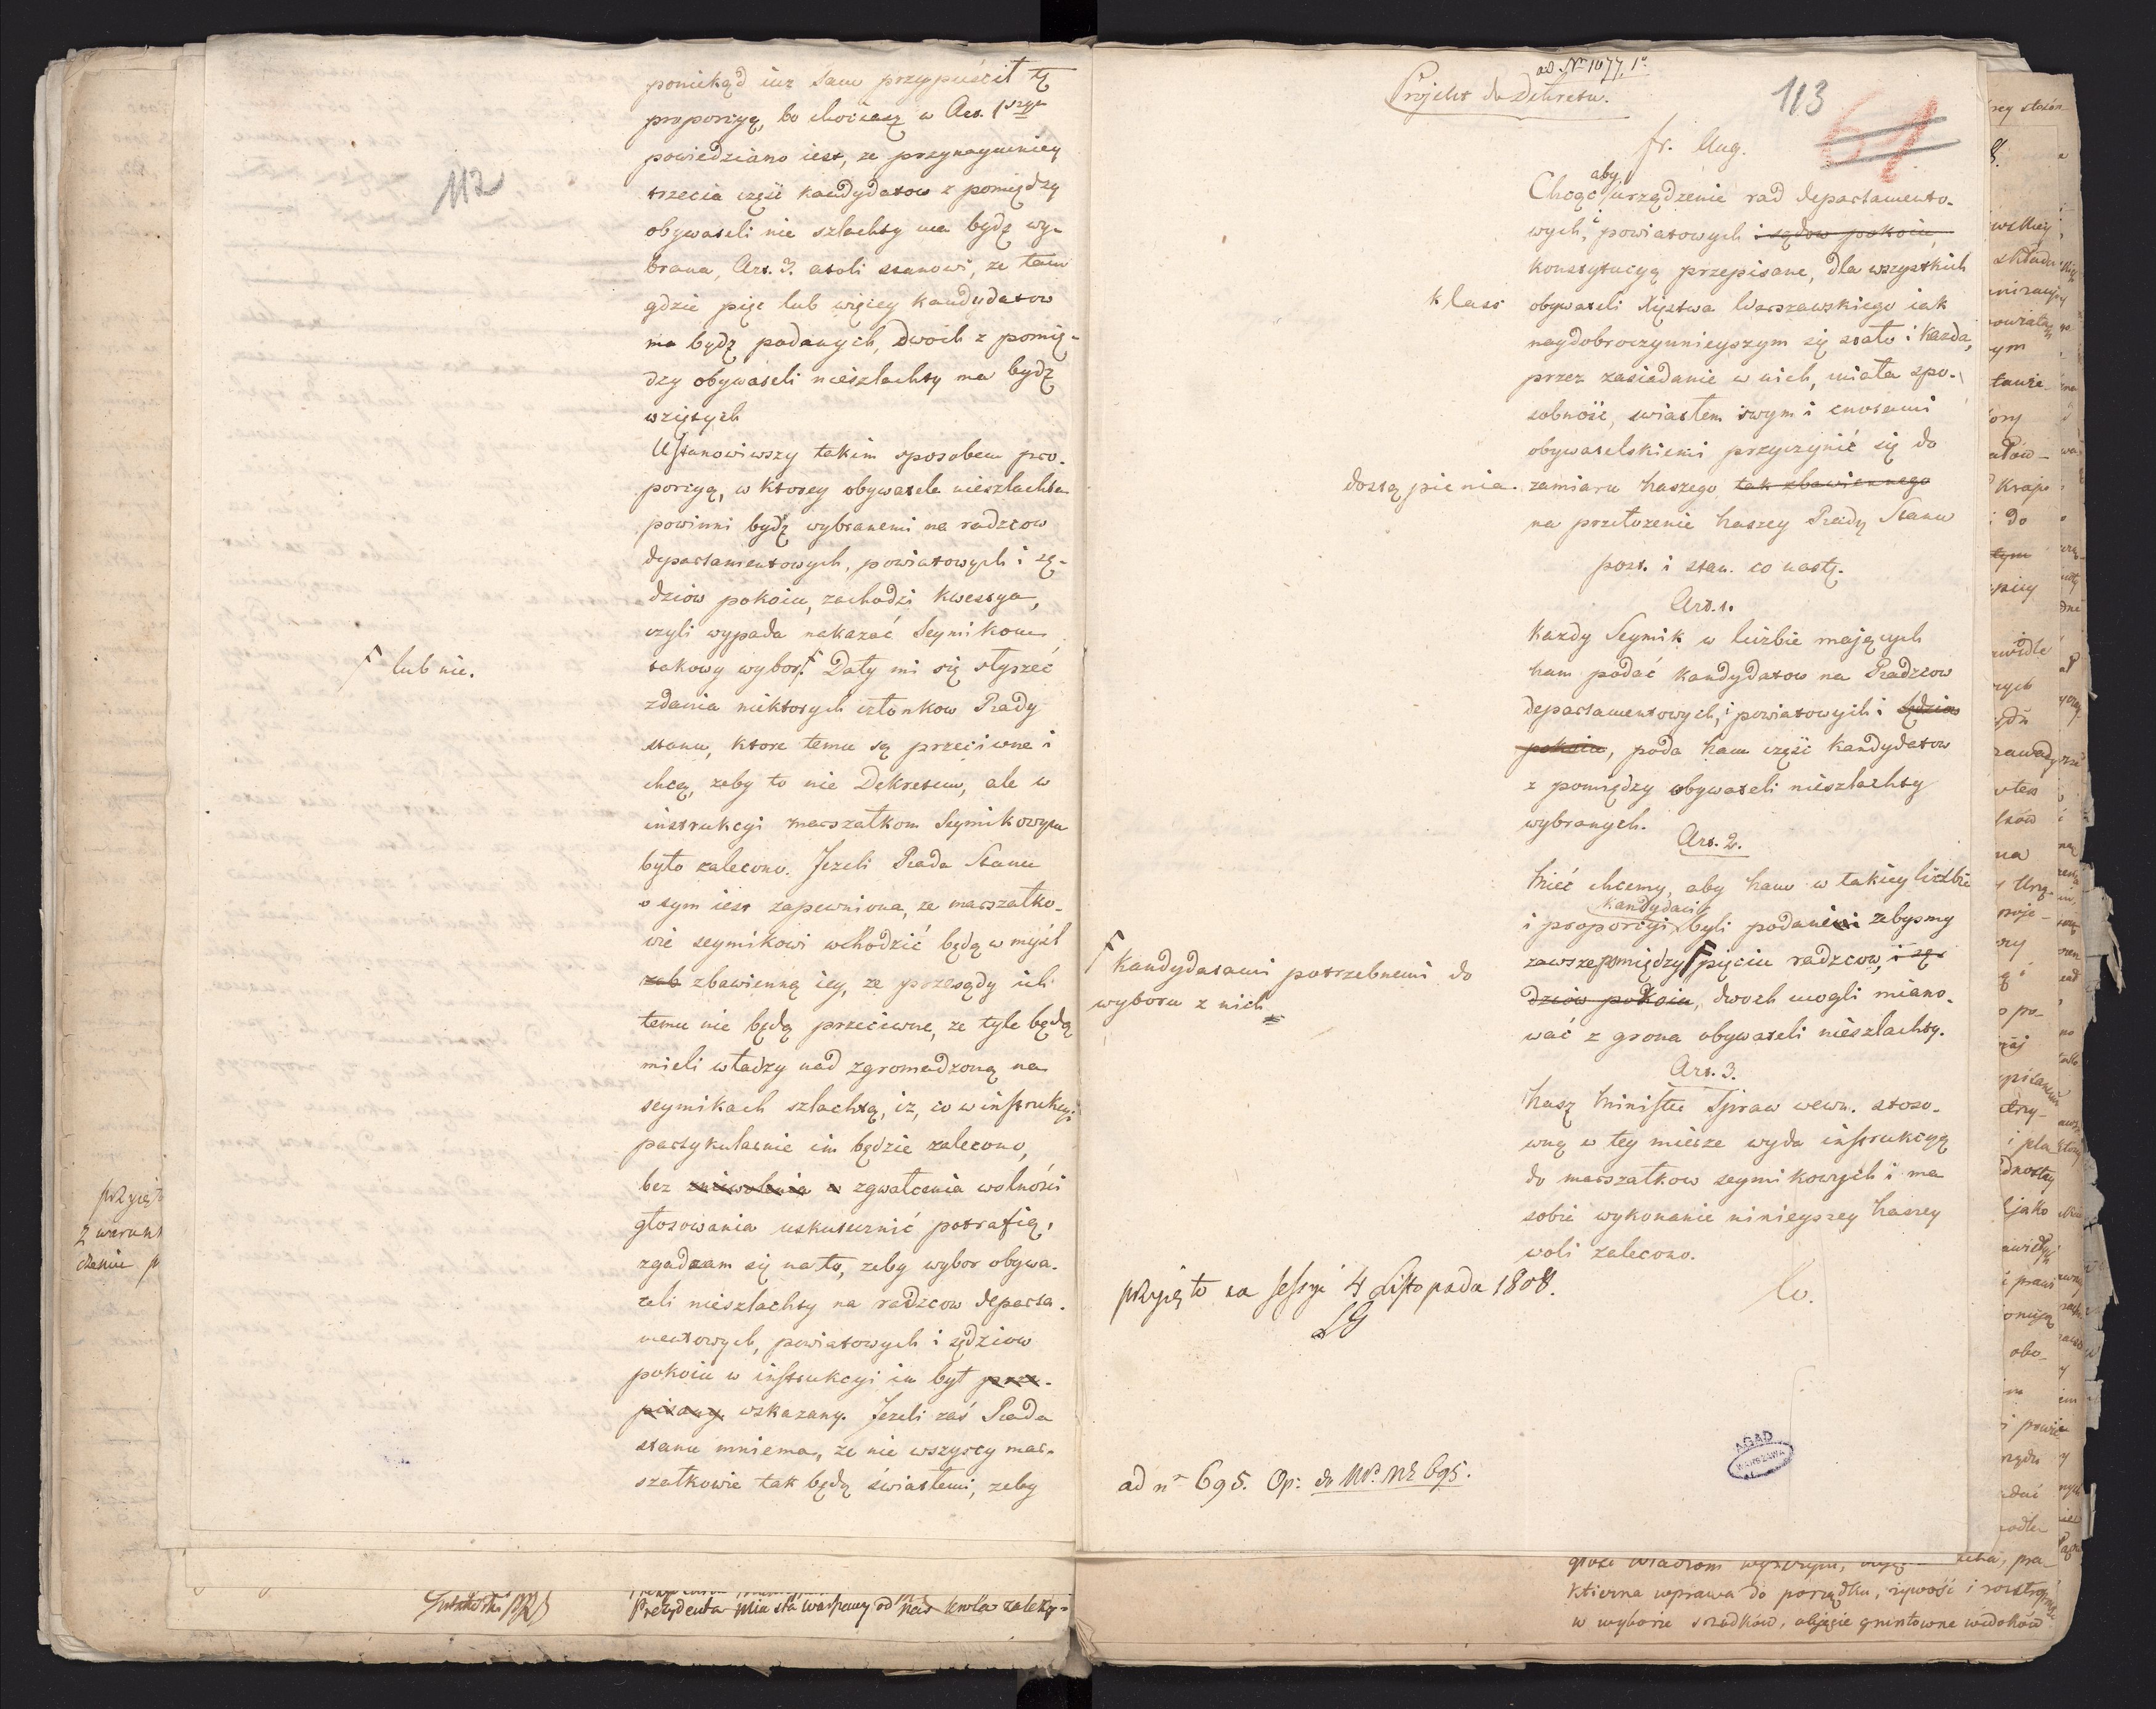 112
poniekąd iuz sam przypuścił tę
proporcyą, bo chociasz w Art. 1szym
powiedziano iest, ze przynaymniey
trzecia część kandydatow z pomiędzy
obywateli nie szlachty ma bydz wy-
brana, Art. 3. atoli stanowi, ze tam
gdzie pięc lub więcey kandydatow
ma bydz podanych, dwoch z pomię-
dzy obywateli nieszlachty ma bydz
wziętych
Ustanowiwszy takim sposobem pro-
porcyą, w ktorey obywatele nieszlachta
powinni bydz wybranemi na radzcow
departamentowych, powiatowych i sę-
dziow pokoiu, zachodzi kwestya,
czyli wypada nakazać Seymikom
takowy wybor F Dały mi się słyszeć
F lub nie.
zdania niektorych członkow Rady
stanu, ktore temu są przeciwne i
chcą, zeby to nie Dekretem, ale w
instrukcyi marszałkom Seymikowym
było zalecono. Jezeli Rada Stanu
o tym iest zapewniona, ze marszałko-
wie seymikowi wchodzić będą w myśl
zab zbawienną iey, ze przesądy ich
temu nie będą przeciwne, ze tyle będą
mieli władzy nad zgromadzoną na
seymikach szlachtą, iz, co w instrukcyi
partykularnie im będzie zalecono,
bez zniewolenia w zgwałcenia wolności
głosowania uskutecznić potrafią,
zgadzam się na to, zeby wybor obywa-
teli nieszlachty na radzcow departa-
mentowych, powiatowych i sędziow
pokoiu w instrukcyi im był prze-
pisany. wskazany. Jezeli zaś Rada
stanu mniema, ze nie wszyscy mar-
szałkowie tak będą światłemi, zeby
przyięto
2 warunk
Prezydenta Miasta Warszawy od Nas Króla zależy-
ad. Nr 1077. 1°
Projekt do Dekretu.
113
61
fr. Aug.
Chcąc aby urządzenie rad departamento-
wych, i powiatowych i sądow pokoiu,
konstytucyą przepisane, dla wszystkich
klass obywateli Xięstwa Warszawskiego iak
naydobroczynnieyszym się stało i kazda,
przez zasiadanie w nich, miała spo-
sobność, swiatłem swym i cnotami
obywatelskiemi przyczynić się do
dostąpienia. zamiaru Naszego tak zbawiennego
na przełozenie Naszey Rady Stanu
post. i stan. co nastę.
Art. 1.
Kazdy Seymik w liczbie mających
Nam podać kandydatow na Radzcow
departamentowych, i powiatowych i sędziow
pokoiu, poda Nam część kandydatow
z pomiędzy obywateli nieszlachty
wybranych.
Art. 2.
Mieć chcemy, aby Nam w takiey liczbie
i proporcyi kandydaci byli podanemi zebysmy
zawsze pomiędzy F pięciu radzcow, i sę-
F kandydatami potrzebnemi do
wyboru z nich
dziow pokoiu, dwoch mogli miano-
wać z grona obywateli nieszlachty.
Art. 3.
Nasz Minister Spraw wewn. stoso-
wną w tey mierze wyda instrukcyą
do marszałkow seymikowych i ma
sobie wykonanie ninieyszey Naszey
woli zalecono.
przyięto na sessyi 4 Listopada 1808.
ad nr 695. Op: do Nr. 695.
AGAD
WARSZAWA
ktierna wprawa do porządku, żywość i roztropność
w wyborze środków, objęcie gruntowne widoków